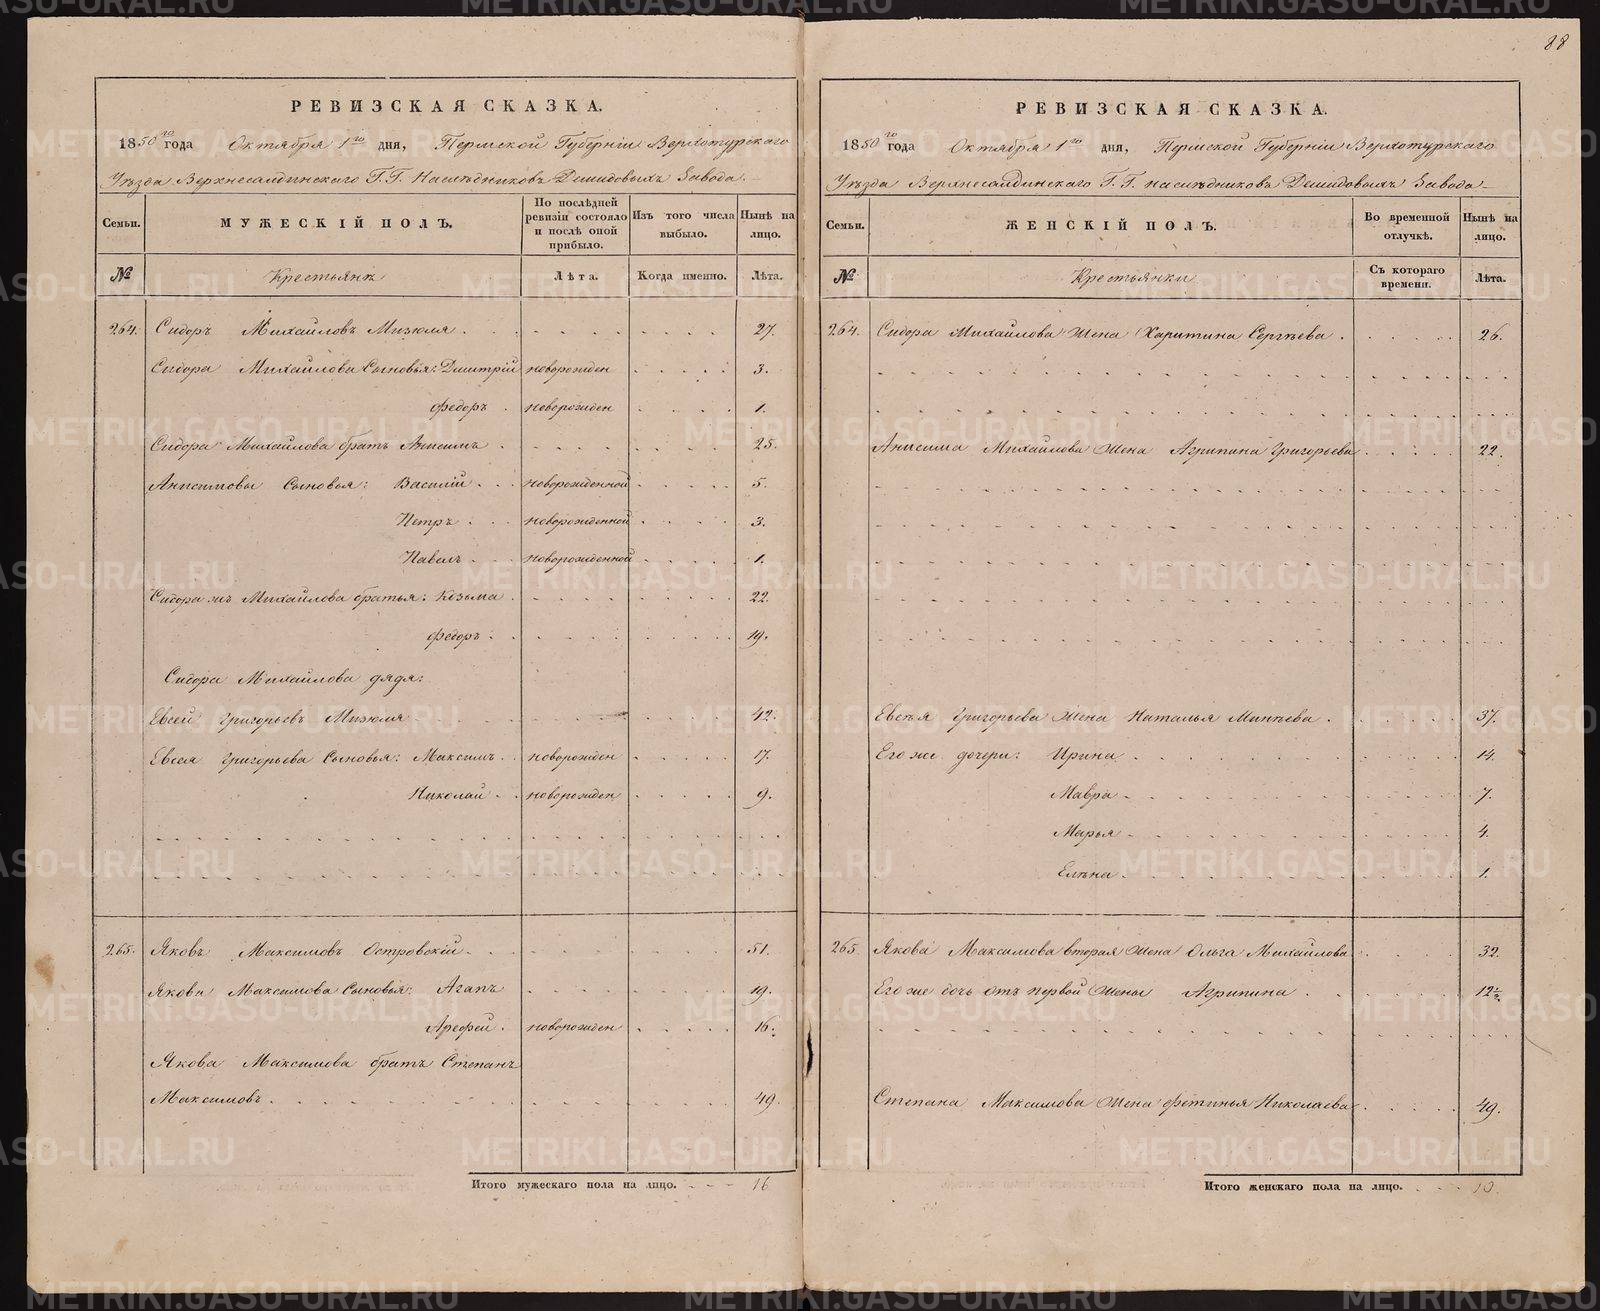 88
РЕВИЗСКАЯ СКАЗКА.
1850го года Октября 1го дня, Пермской Губерніи Верхотурскаго
Уѣзда Верхнесалдинскаго Г.Г. Наслѣдниковъ Демидовыхъ Завода.
Семьи.
МУЖЕСКІЙ ПОЛЪ.
По послѣдней ревизіи состояло и послѣ оной прибыло.
Изъ того числа выбыло.
Нынѣ на лицо.
№
Крестьянъ
Лѣта.
Когда именно.
Лѣта.
264. Сидоръ Михайловъ Мизюля 27.
Сидора Михайлова Сыновья: Дмитрій новорожден 3.
Федоръ новорожден 1.
Сидора Михайлова братъ Анисимъ 25.
Анисимовы Сыновья: Василій новорожденной 5.
Петръ новорожденной 3.
Павелъ новорожденной 1.
Сидора жъ Михайлова братья: Козьма 22.
Федоръ 19.
Сидора Михайлова дядя:
Евсей Григорьевъ Мизюля 42.
Евсея Григорьева Сыновья: Максимъ новорожден 17.
Николай новорожден 9.
265. Яковъ Максимовъ Островскій 51.
Якова Максимова Сыновья: Агапъ 19.
Арефей новорожден 16.
Якова Максимова братъ Степанъ
Максимовъ 49.
Итого мужескаго пола на лицо. 16
РЕВИЗСКАЯ СКАЗКА.
1850го года Октября 1го дня, Пермской Губерніи Верхотурскаго
Уѣзда Верхнесалдинскаго Г.Г. наслѣдниковъ Демидовыхъ Завода
Семьи.
ЖЕНСКІЙ ПОЛЪ.
Во временной отлучкѣ.
Нынѣ на лицо.
№
Крестьянки
Съ котораго времени.
Лѣта.
264. Сидора Михайлова жена Харитина Сергѣева 26.
Анисима Михайлова жена Агрипина Григорьева 22.
Евсѣя Григорьева жена Наталья Минѣева 37.
Его же дочери: Ирина 14.
Мавра 7.
Марья 4.
Елѣна 1.
265. Якова Максимова вторая жена Ольга Михайлова 32.
Его же дочь отъ первой жены Агрипина 12½
Степана Максимова жена Фетинья Николаева 49.
Итого женскаго пола на лицо. 10.
METRIKI.GASO-URAL.RU